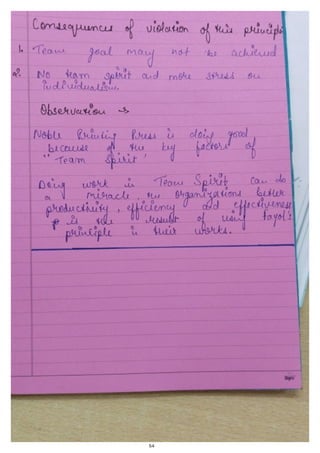 Consequences of violation of this principle
1. Team goal may not be achieved
2. No team spirit and more stress on
individualism.
Observation →
Noble Printing Press is doing good
because of the key factors of
"Team Spirit"
Doing work in Team Spirit can do
a miracle, the organizations better
productivity, efficiency and effectiveness
is the result of using fayol's
principle in their works.
Sign/
54